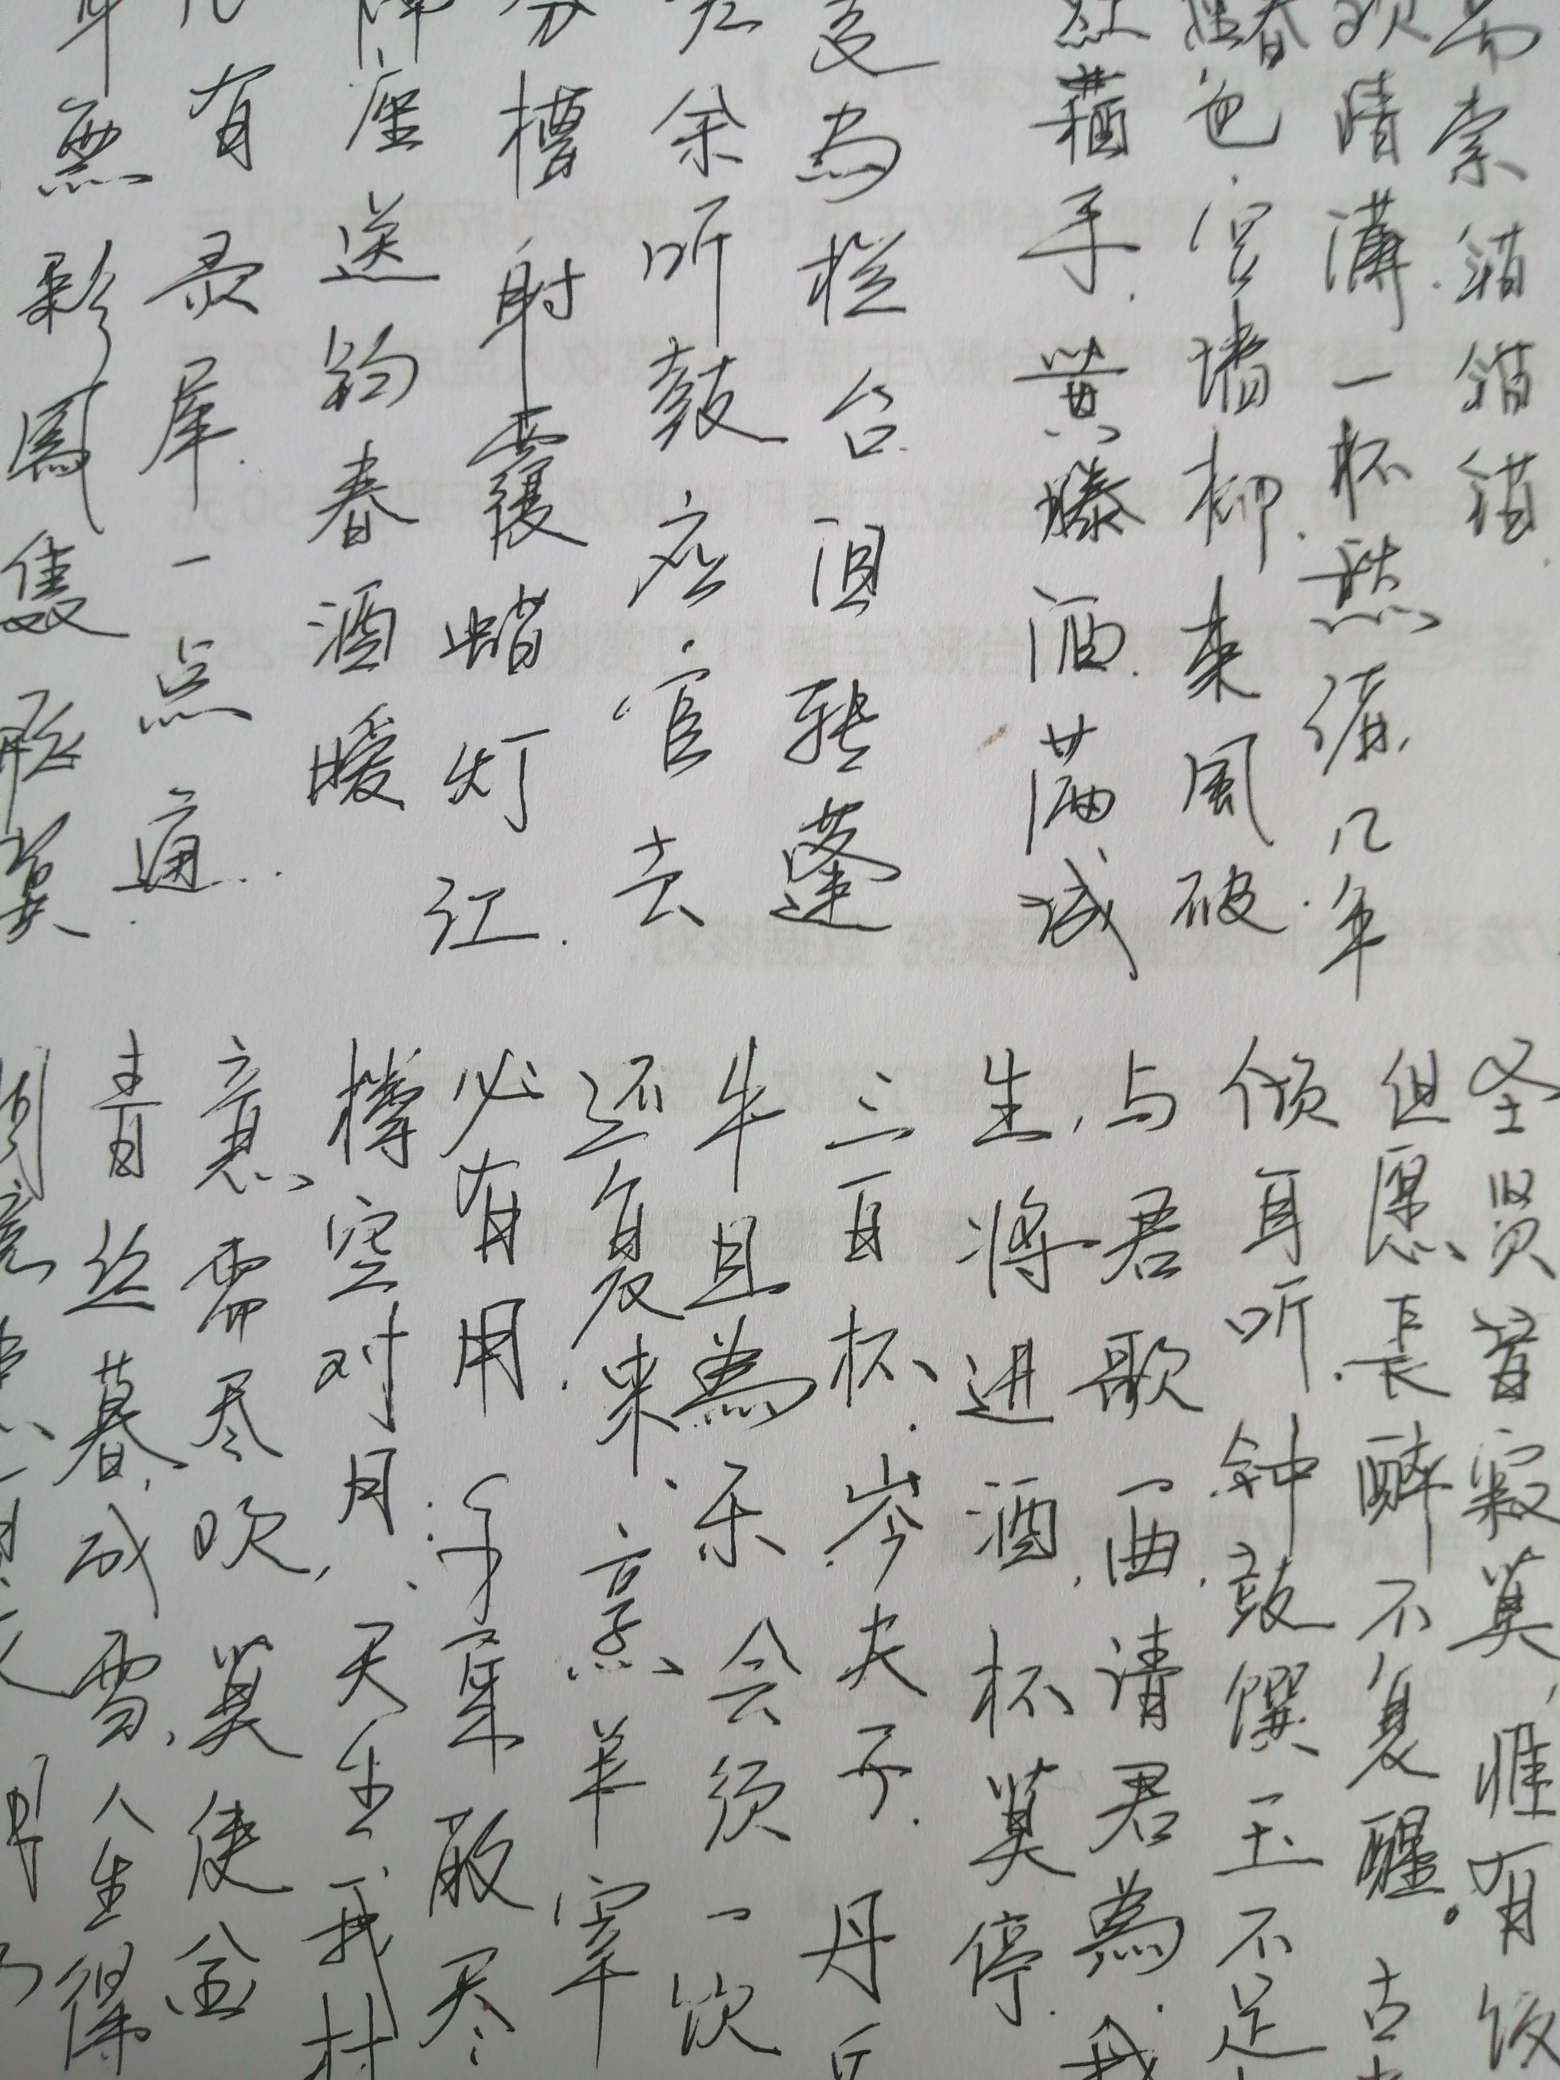 無彩鳳隻飛翼.
有灵犀.一点通..
座送钩春酒暖
分槽射覆蜡灯江.
余听鼓应官去
走為栏台.泪转蓬
红蘸手.黄藤酒.满城
春色宫墙柳.東風破.
欢情薄.一杯愁绪,几年
索错错错.
青丝暮,成雪、人生得
意需尽欢,莫使金
樽空对月、天生我材
必有用.千散尽
还复来、烹羊宰
牛且為乐会须一饮
三百杯.岑夫子.丹丘
生,将进酒,杯莫停.
与君歌一曲,请君為我
倾耳听.钟鼓馔玉不足
但愿長醉不复醒。古
圣贤皆寂莫,惟有饮